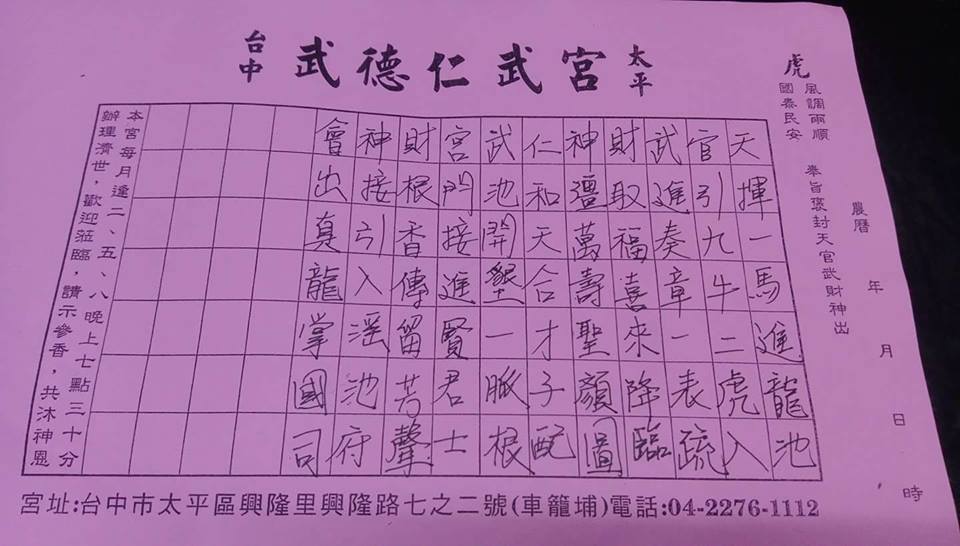 台中 武德仁武宮 太平
虎
風調雨順
國泰民安
奉旨褒封天官武財神出
農曆 年 月 日 時
天揮一馬進龍池
官引九牛二虎入
武進奏章一表疏
財取福喜來降臨
神壇萬壽聖顏圖
仁和天合才子配
武池開墾一脈根
宮門接進賢君士
財根香傳留芳聲
神接引入滛池府
會出真龍掌國司
本宮每月逢二、五、八晚上七點三十分
辦理濟世，歡迎蒞臨，請示參香，共沐神恩
宮址:台中市太平區興隆里興隆路七之二號(車籠埔)電話:04-2276-1112